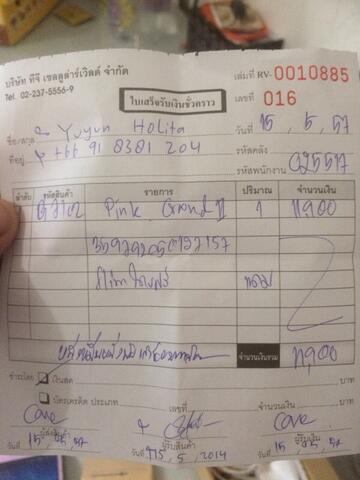 บริษัท ทีจี เซลลูล่าร์เวิลด์ จำกัด
Tel. 02-237-5556-9
เล่มที่ RV- 0010885
ใบเสร็จรับเงินชั่วคราว
เลขที่ 016
ชื่อ/สกุล Yuyun Holita
วันที่ 15, 5, 57
ที่อยู่ +66 91 8381 204
รหัสคลัง
รหัสพนักงาน 025517
ลำดับ รหัสสินค้า รายการ ปริมาณ จำนวนเงิน
Pink Grand II 1 11,900
จำนวนเงินรวม 11,900
ชำระโดย เงินสด บาท
บัตรเครดิต ประเภท เลขที่ จำนวนเงิน บาท
ผู้ส่งสินค้า ผู้รับสินค้า ผู้รับเงิน
วันที่ 15, 05, 57 วันที่ 15, 5, 2014 วันที่ 15, 05, 57